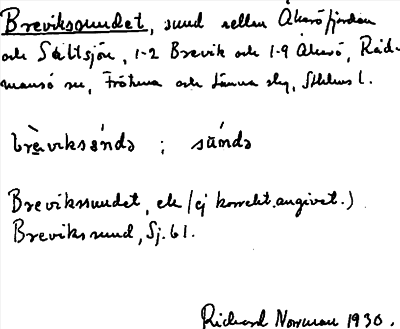 Brevikssundet, sund mellan Åkeröfjärden
och Saltsjön, 1-2 Brevik och 1-9 Åkerö, Råd-
mansö sn, Frötuna och Länna slg, Sthlms l.
brèviksə́ndə ; súndə
Brevikssundet, ek (ej korrekt angivet.)
Brevikssund, Sj. 61.
Richard Norrman 1930.